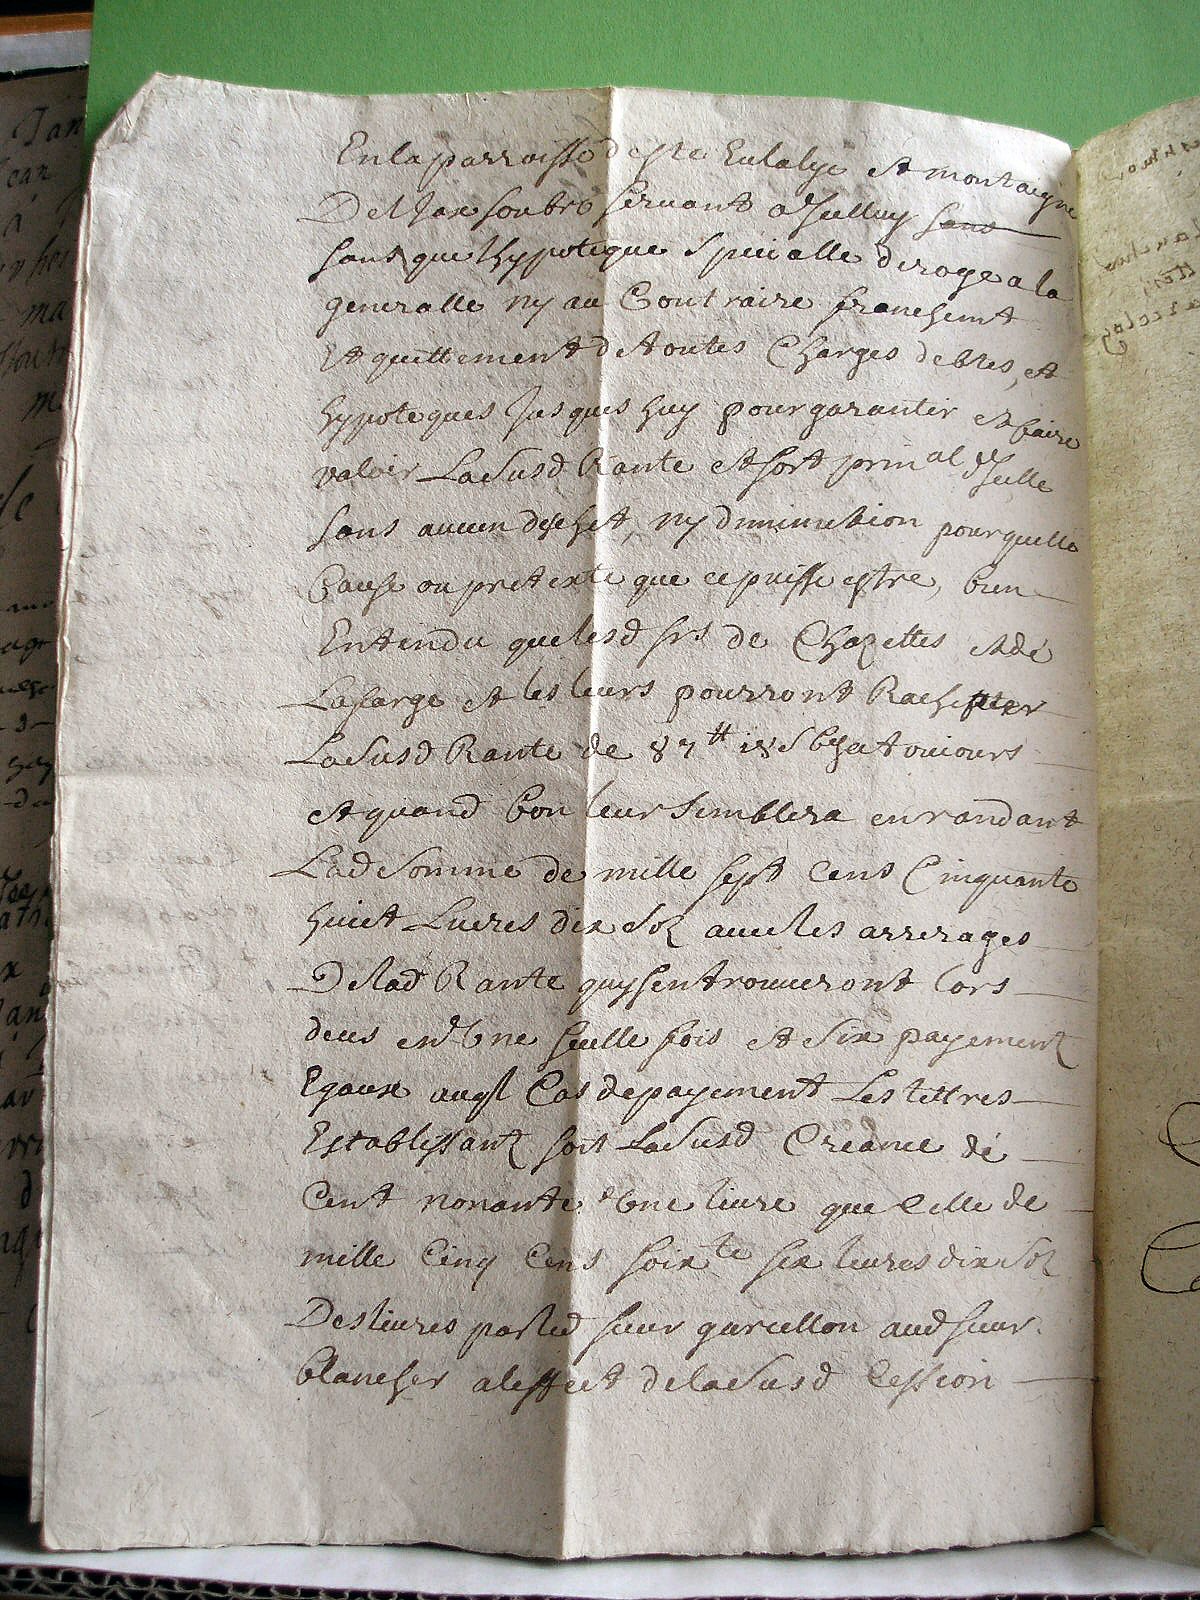 En la parroisse de ste Eulalye et montaigne
Del Jax soubro servant a Jcelluy sans
sans que lhypoteque specialle deroge a la
generalle ny au Contraire franchemt
Et quittement de toutes Charges debtes, et
hypoteques Jusques huy pour garantir et faire
valoir La Susd Rante et sort prinal dJcelle
sans aucun dechet, ny diminution pour quelle
Cause ou pretexte que ce puisse estre, bien
Entendu que lesd srs de Chazettes et de
Lafarge et les leurs pourront Rachepter
La Susd Rante de 87tt 18 s a toujours
et quand bon leur Semblera en randant
Lad Somme de mille sept Cens Cinquante
huict Livres dix Solz avec les arrerages
De lad Rante quy sen trouveront lors
deus en Une seulle fois et Six payementz
Egaux auql Cas de payement Les tettres
Establissantz soit La Susd Creance de
Cent nonante Une livre que Celle de
mille Cinq Cens soixte six livres dix Solz
Deslivres par led sieur garcellon aud sieur
blancher a leffect de la Susd Cession